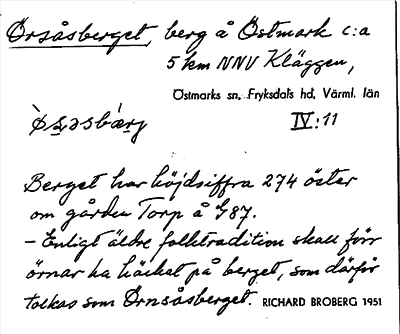 Örsåsberget, berg å Östmark c:a
5 km NNV Kläggen,
Östmarks sn. Fryksdals hd. Värml. län
IV:11
Berget har höjdsiffra 274 öster
om gården Torp å G87.
- Enligt äldre folktradition skall förr
örnar ha häckat på berget, som därför
tolkas som Örnsåsberget. RICHARD BROBERG 1951